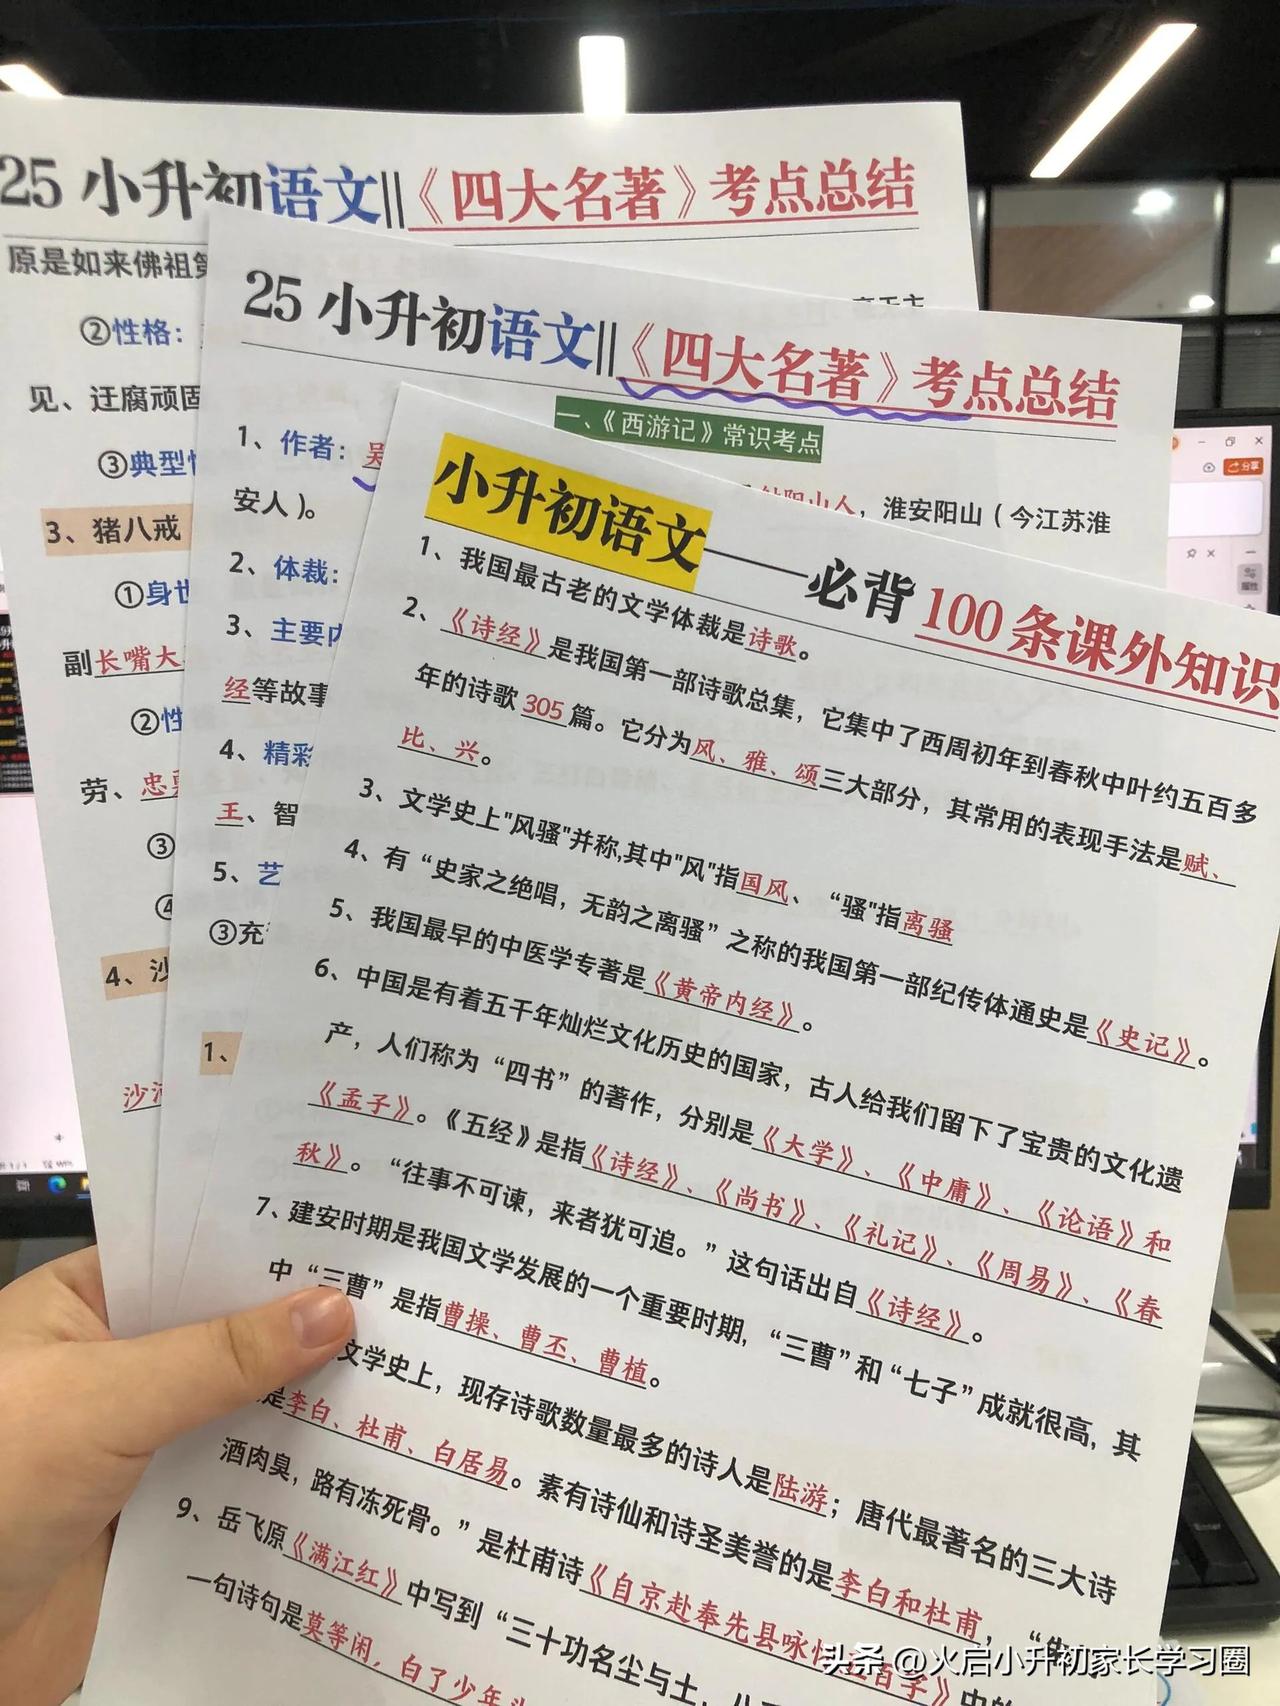 25 小升初语文||《四大名著》考点总结
原是如来佛祖第
②性格：
见、迂腐顽固
③典型
3、猪八戒
①身世
副长嘴大
②性
劳、忠勇
③
④
4、沙
沙
25 小升初语文||《四大名著》考点总结
一、《西游记》常识考点
1、作者：吴
射阳山人，淮安阳山（今江苏淮
安人）。
2、体裁：
3、主要内
经等故事
4、精彩
王、智
5、艺
③充
1、
小升初语文——必背100条课外知识
1、我国最古老的文学体裁是诗歌。
2、《诗经》是我国第一部诗歌总集，它集中了西周初年到春秋中叶约五百多
年的诗歌 305 篇。它分为风、雅、颂三大部分，其常用的表现手法是赋、
比、兴。
3、文学史上"风骚"并称,其中"风"指国风、“骚"指离骚
4、有“史家之绝唱，无韵之离骚”之称的我国第一部纪传体通史是《史记》。
5、我国最早的中医学专著是《黄帝内经》。
6、中国是有着五千年灿烂文化历史的国家，古人给我们留下了宝贵的文化遗
产，人们称为“四书”的著作，分别是《大学》、《中庸》、《论语》和
《孟子》。《五经》是指《诗经》、《尚书》、《礼记》、《周易》、《春
秋》。“往事不可谏，来者犹可追。”这句话出自《诗经》。
7、建安时期是我国文学发展的一个重要时期，“三曹”和“七子”成就很高，其
中“三曹”是指曹操、曹丕、曹植。
文学史上，现存诗歌数量最多的诗人是陆游；唐代最著名的三大诗
是李白、杜甫、白居易。素有诗仙和诗圣美誉的是李白和杜甫，“朱
酒肉臭，路有冻死骨。”是杜甫诗《自京赴奉先县咏怀五百字》中的
9、岳飞原《满江红》中写到“三十功名尘与土，八
一句诗句是莫等闲，白了少年头
分享
头条 @火启小升初家长学习圈